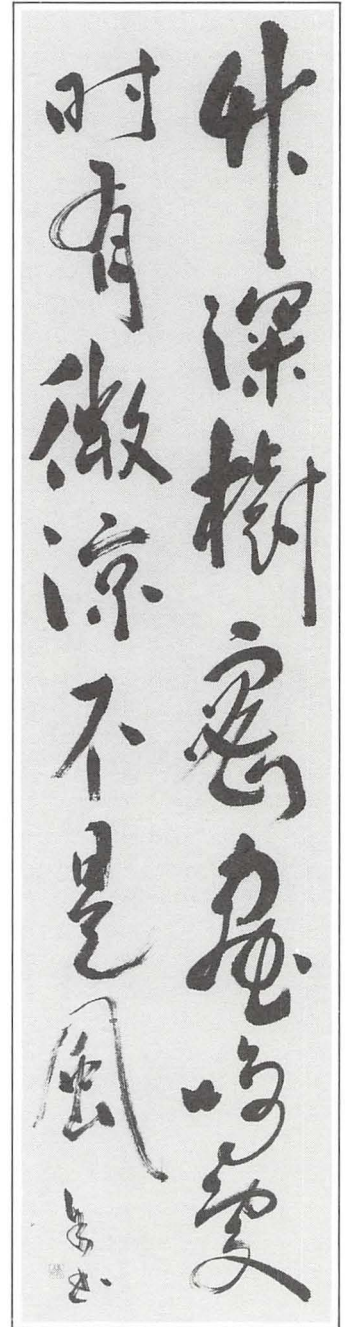 竹深樹密蟲鳴處
時有微涼不是風